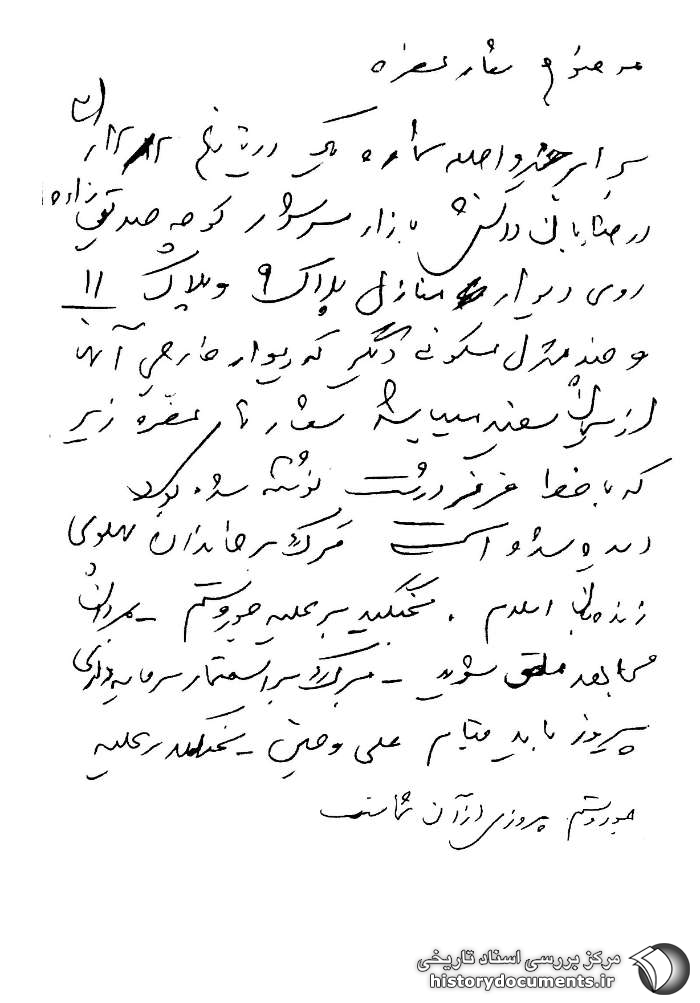 موضوع شعار مضره
برابر خبر واصله شماره یک در تاریخ
در خیابان بازار سرسوار کوچه صدیق زاده
روی دیوار منازل پلاک ۹ و پلاک ۱۱
و چند منزل مسکونی دیگر که دیوار خارجی آنها
از سیمان سفید میباشد شعارهای مضره زیر
که با خط قرمز درشت نوشته شده بود
دیده شده است مرگ بر خاندان پهلوی
زنده باد اسلام . بجنگید بر علیه جور و ستم –
ملحق شوید – مرگ بر استثمار سرمایه داری
پیروز باید قیام علی و حسین – بجنگید بر علیه
جور و ستم پیروزی از آن شماست
مرکز بررسی اسناد تاریخی
historydocuments.ir